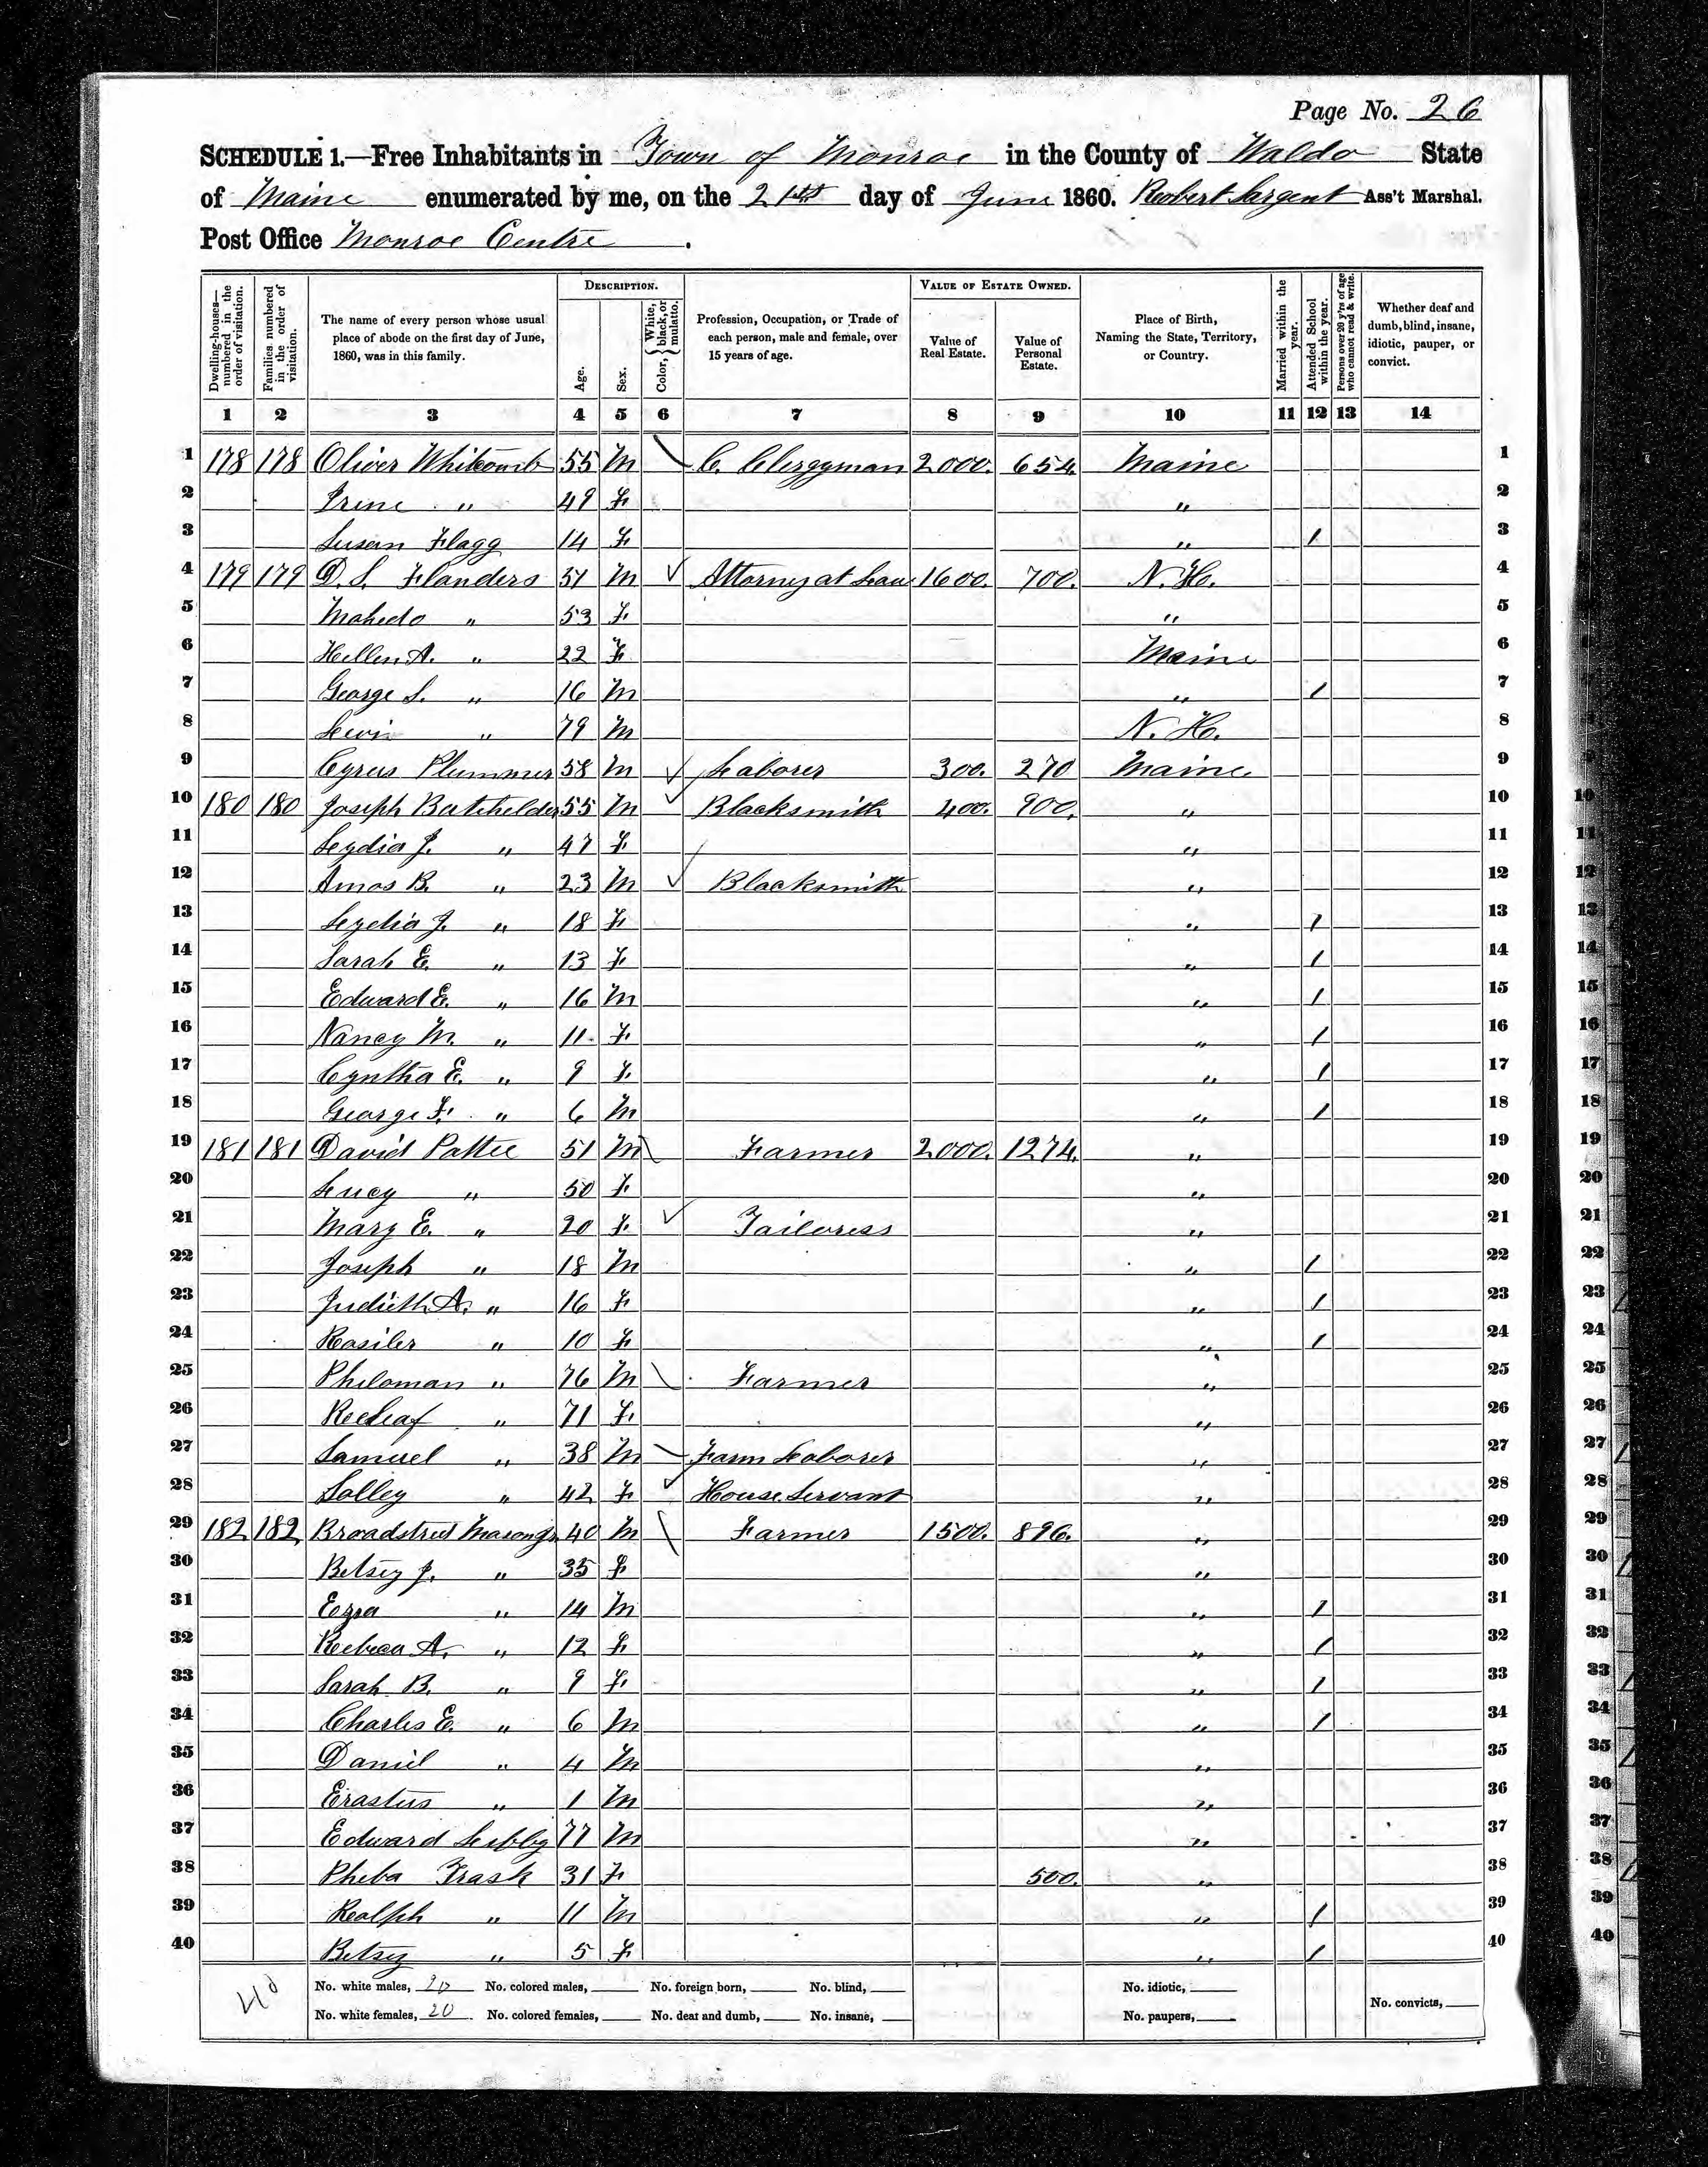 Page No. 26
SCHEDULE 1.—Free Inhabitants in Town of Monroe in the County of Waldo State
of Maine enumerated by me, on the 21st day of June 1860. Robert Sargent Ass't Marshal.
Post Office Monroe Centre.
Dwelling-houses—numbered in the order of visitation.
Families numbered in the order of visitation.
The name of every person whose usual place of abode on the first day of June, 1860, was in this family.
DESCRIPTION.
Age.
Sex.
Color, { White, black, or mulatto.
Profession, Occupation, or Trade of each person, male and female, over 15 years of age.
VALUE OF ESTATE OWNED.
Value of Real Estate.
Value of Personal Estate.
Place of Birth, Naming the State, Territory, or Country.
Married within the year.
Attended School within the year.
Persons over 20 y'rs of age who cannot read & write.
Whether deaf and dumb, blind, insane, idiotic, pauper, or convict.
1 2 3 4 5 6 7 8 9 10 11 12 13 14
1 178 178 Oliver Whitcomb 55 M C. Clergyman 2000. 654. Maine 1
2 Irene " 49 F " 2
3 Susan Flagg 14 F " / 3
4 179 179 D. S. Flanders 51 M ✓ Attorney at Law 1600. 700. N. H. 4
5 " 53 F " 5
6 Hellen A. " 22 F Maine 6
7 George S. " 16 M " / 7
8 Lewis " 79 M N. H. 8
9 Cyrus Plummer 58 M ✓ Laborer 300. 270 Maine 9
10 180 180 Joseph Batchelder 55 M ✓ Blacksmith 400. 900. " 10
11 Lydia J. " 47 F " 11
12 Amos B. " 23 M ✓ Blacksmith " 12
13 Lydia J. " 18 F " / 13
14 Sarah E. " 13 F " / 14
15 Edward E. " 16 M " / 15
16 Nancy M. " 11 F " / 16
17 Cyntha E. " 9 F " / 17
18 George F. " 6 M " / 18
19 181 181 David Pattee 51 M Farmer 2000. 1274. " 19
20 Lucy " 50 F " 20
21 Mary E. " 20 F ✓ Tailoress " 21
22 Joseph " 18 M " / 22
23 Judieth A. " 16 F " / 23
24 Rosiler " 10 F " / 24
25 Philoman " 76 M Farmer " 25
26 " 71 F " 26
27 Samuel " 38 M Farm Laborer " 27
28 Salley " 42 F ✓ House Servant " 28
29 182 182 Broadstreet Mason Jr. 40 M Farmer 1500. 896. " 29
30 Betsey J. " 35 F " 30
31 Ezra " 14 M " / 31
32 Rebecca A. " 12 F " / 32
33 Sarah B. " 9 F " / 33
34 Charles E. " 6 M " / 34
35 Daniel " 4 M " 35
36 Erastus " 1 M " 36
37 Edward Libby 77 M " 37
38 Pheba Trask 31 F 500. " 38
39 Ralph " 11 M " / 39
40 Betsey " 5 F " / 40
40
No. white males, 20 No. colored males, No. foreign born, No. blind, No. idiotic, No. convicts,
No. white females, 20 No. colored females, No. deaf and dumb, No. insane, No. paupers,